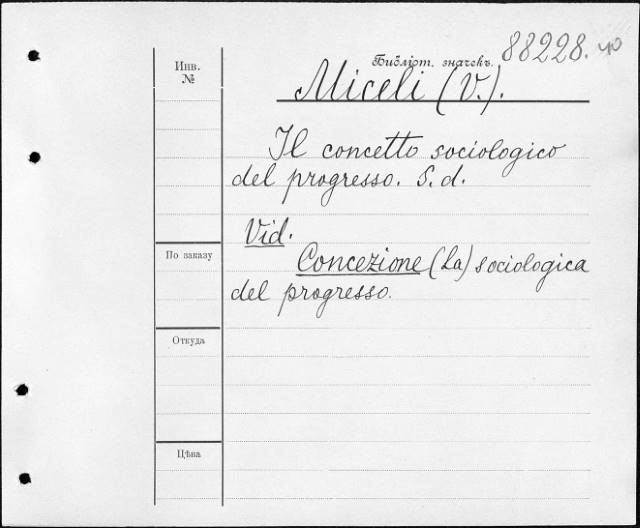 88228.
Инв.
№
Библіот. значекъ.
Miceli (V.).
Il concetto sociologico
del progresso. S. d.
Vid.
Concezione (La) sociologica
del progresso.
По заказу
Откуда
Цѣна